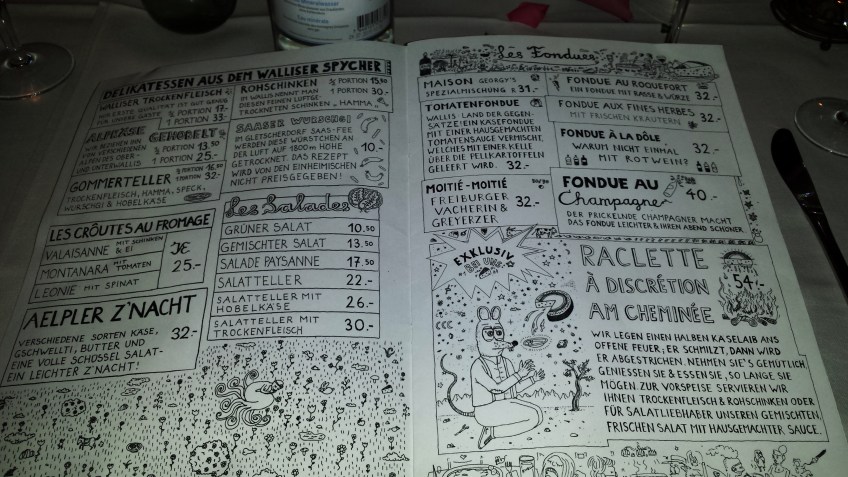 DELIKATESSEN AUS DEM WALLISER SPYCHER
WALLISER TROCKENFLEISCH
½ PORTION 17.-
1 PORTION 33.-
ROHSCHINKEN
½ PORTION 15.50
1 PORTION 30.-
IM WALLIS NENNT MAN
DIESEN FEINEN LUFTGE-
TROCKNETEN SCHINKEN „HAMMA„
ALPKÄSE GEHOBELT
½ PORTION 13.50
1 PORTION 25.-
ALPEN DES OBER-
UND UNTERWALLIS
SAASER WURSCHGI
IM GLETSCHERDORF SAAS-FEE
WERDEN DIESE WÜRSTCHEN AN
DER LUFT AUF 1800M HÖHE
GETROCKNET. DAS REZEPT
WIRD VON DEN EINHEIMISCHEN
NICHT PREISGEGEBEN!
10.-
GOMMERTELLER
1 PORTION 32.-
TROCKENFLEISCH, HAMMA, SPECK,
WURSCHGI & HOBELKÄSE
LES CRÔUTES AU FROMAGE
VALAISANNE MIT SCHINKEN & EI
MONTANARA MIT TOMATEN
LEONIE MIT SPINAT
JE
25.-
AELPLER Z'NACHT
VERSCHIEDENE SORTEN KÄSE,
GSCHWELLTI, BUTTER UND
EINE VOLLE SCHÜSSEL SALAT-
EIN LEICHTER Z'NACHT!
32.-
Les Salades
GRÜNER SALAT 10.50
GEMISCHTER SALAT 13.50
SALADE PAYSANNE 17.50
SALATTELLER 22.-
SALATTELLER MIT
HOBELKÄSE 26.-
SALATTELLER MIT
TROCKENFLEISCH 30.-
Les Fondues
MAISON GEORGY'S
SPEZIALMISCHUNG 31.-
TOMATENFONDUE
WALLIS: LAND DER GEGEN-
SÄTZE! EIN KÄSEFONDUE
MIT EINER HAUSGEMACHTEN
TOMATENSAUCE VERMISCHT,
WELCHES MIT EINER KELLE
ÜBER DIE PELLKARTOFFELN
GELEERT WIRD. 32.-
MOITIÉ-MOITIÉ 50/50
FREIBURGER
VACHERIN &
GREYERZER
32.-
FONDUE AU ROQUEFORT
EIN FONDUE MIT RASSE & WÜRZE 32.-
FONDUE AUX FINES HERBES
MIT FRISCHEN KRÄUTERN 32.-
FONDUE À LA DÔLE
WARUM NICHT EINMAL
MIT ROTWEIN?
32.-
FONDUE AU
Champagner
40.-
DER PRICKELNDE CHAMPAGNER MACHT
DAS FONDUE LEICHTER & IHREN ABEND SCHÖNER.
EXKLUSIV
BEI UNS!
RACLETTE
À DISCRÉTION
AM CHEMINÉE
54.-
WIR LEGEN EINEN HALBEN KÄSELAIB ANS
OFFENE FEUER; ER SCHMILZT, DANN WIRD
ER ABGESTRICHEN. NEHMEN SIE'S GEMÜTLICH
GENIESSEN SIE & ESSEN SIE, SO LANGE SIE
MÖGEN. ZUR VORSPEISE SERVIEREN WIR
IHNEN TROCKENFLEISCH & ROHSCHINKEN ODER
FÜR SALATLIEBHABER UNSEREN GEMISCHTEN,
FRISCHEN SALAT MIT HAUSGEMACHTER SAUCE.